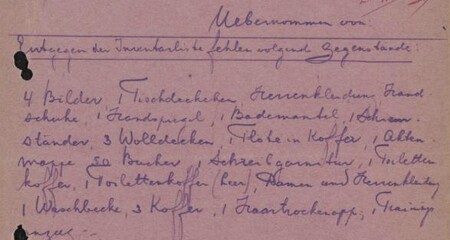 Uebernommen von
Entgegen der Inventarliste fehlen folgend Gegenstände:
4 Bilder, 1 Tischdeckchen, Herrenkleidung, Hand
schuhe, 1 Handspiegel, 1 Bademantel, 1 Schirm
ständer, 3 Wolldecken, 1 Flöte in Koffer, 1 Akten
mappe 50 Bücher, 1 Schreibgarnitur, 1 Toiletten
koffer, 1 Toilettenkoffer (leer), Damen und Herrenkleidung
1 Waschbecke, 3 Koffer, 1 Haartrockenapp, 1 Training
anzug -